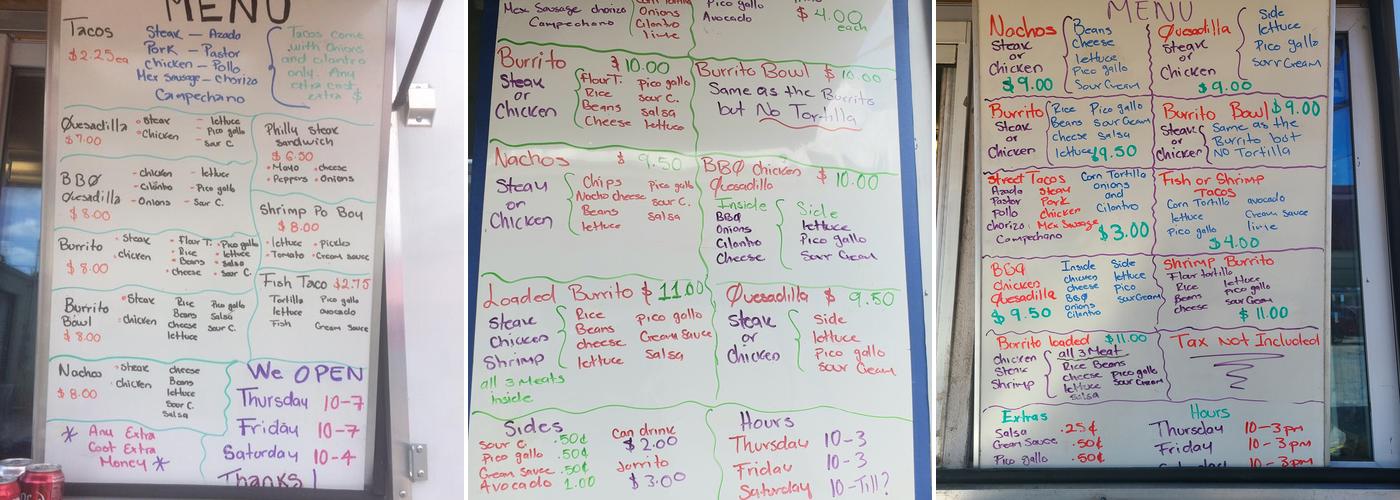 MENU
Tacos
$2.25ea
Steak - Azado
Pork - Pastor
Chicken - Pollo
Mex Sausage - chorizo
Campechano
Tacos come
with Onions
and cilantro
only. Any
extra cost
extra $
Quesadilla
$7.00
• Steak
• Chicken
- lettuce
- Pico gallo
- Sour C.
BBQ
Quesadilla
$8.00
- chicken
- Cilantro
- Onions
- lettuce
- Pico gallo
- Sour C.
Burrito
$8.00
• Steak
• chicken
• Flour T.
• Rice
• Beans
• cheese
• Pico gallo
• lettuce
• Salsa
• Sour C.
Burrito
Bowl
$8.00
• Steak
• chicken
Rice
Beans
cheese
lettuce
Pico gallo
Salsa
Sour C.
Nachos
$8.00
• Steak
• chicken
cheese
Beans
lettuce
Sour C.
Salsa
* Any Extra
Cost Extra
Money *
Philly Steak
Sandwich
$6.50
• Mayo • cheese
• Peppers • Onions
Shrimp Po Boy
$8.00
• lettuce • Picklo
• Tomato • Cream Sauce
Fish Taco $2.75
Tortilla
lettuce
Fish
Pico gallo
avocado
Cream Sauce
We OPEN
Thursday 10-7
Friday 10-7
Saturday 10-4
Thanks!
Mex Sausage chorizo
Campechano
Onions
Cilantro
lime
Pico gallo
Avocado
$4.00
each
Burrito $10.00
Steak
or
Chicken
flour T.
Rice
Beans
Cheese
Pico gallo
Sour C.
Salsa
lettuce
Burrito Bowl $10.00
Same as the Burrito
but No Tortilla
Nachos $9.50
Steak
or
Chicken
Chips
Nacho cheese
Beans
lettuce
Pico gallo
Sour C.
Salsa
BBQ chicken
Quesadilla
$10.00
Inside
BBQ
Onions
Cilantro
Cheese
Side
lettuce
Pico gallo
Sour Cream
Loaded Burrito $11.00
Steak
Chicken
Shrimp
all 3 Meats
inside
Rice
Beans
cheese
lettuce
Pico gallo
Cream Sauce
Salsa
Quesadilla $9.50
Steak
or
Chicken
Side
lettuce
Pico gallo
Sour Cream
Sides
Sour C. .50¢
Pico gallo .50¢
Cream Sauce .50¢
Avocado 1.00
Can drink
$2.00
Jarrito
$3.00
Hours
Thursday 10-3
Friday 10-3
Saturday 10-Till?
MENU
Nachos
Steak
or
Chicken
$9.00
Beans
Cheese
lettuce
Pico gallo
Sour Cream
Quesadilla
Steak
or
Chicken
$9.00
Side
lettuce
Pico gallo
Sour Cream
Burrito
Steak
or
Chicken
Rice
Beans
cheese
lettuce
Pico gallo
Sour Cream
Salsa
$9.50
Burrito Bowl $9.00
Steak
or
Chicken
Same as the
Burrito but
NO Tortilla
Street Tacos
Azada Steak
Pastor Pork
Pollo chicken
chorizo Mex Sausage
Campechano
Corn Tortilla
onions
and
Cilantro
$3.00
Fish or Shrimp
Tacos
Corn Tortilla
lettuce
Pico gallo
avocado
Cream Sauce
lime
$4.00
BBQ
Chicken
Quesadilla
$9.50
Inside
chicken
cheese
BBQ
onions
Cilantro
Side
lettuce
Pico
Sour Cream
Shrimp Burrito
Flour tortilla
Rice
Beans
cheese
lettuce
Pico gallo
Sour Cream
$11.00
Burrito loaded $11.00
chicken
Steak
Shrimp
all 3 Meat
Rice Beans
cheese Pico gallo
lettuce Sour Cream
Salsa
Tax Not Included
Extras
Salsa .25¢
Cream Sauce .50¢
Pico gallo .50¢
Hours
Thursday 10-3pm
Friday 10-3pm
10-3pm